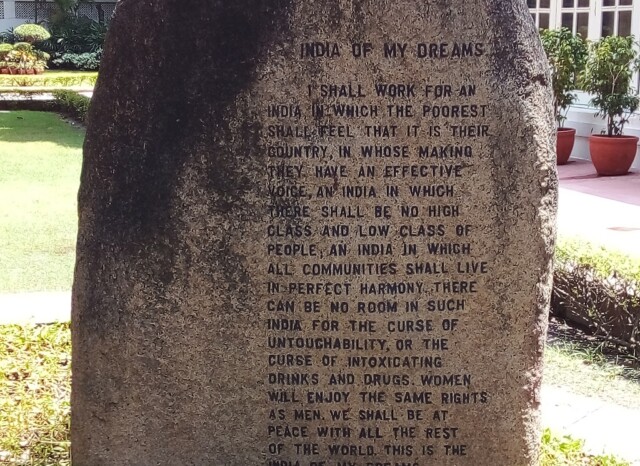 INDIA OF MY DREAMS
I SHALL WORK FOR AN
INDIA, IN WHICH THE POOREST
SHALL FEEL THAT IT IS THEIR
COUNTRY, IN WHOSE MAKING
THEY HAVE AN EFFECTIVE
VOICE, AN INDIA IN WHICH
THERE SHALL BE NO HIGH
CLASS AND LOW CLASS OF
PEOPLE, AN INDIA IN WHICH
ALL COMMUNITIES SHALL LIVE
IN PERFECT HARMONY. THERE
CAN BE NO ROOM IN SUCH
INDIA FOR THE CURSE OF
UNTOUCHABILITY, OR THE
CURSE OF INTOXICATING
DRINKS AND DRUGS. WOMEN
WILL ENJOY THE SAME RIGHTS
AS MEN. WE SHALL BE AT
PEACE WITH ALL THE REST
OF THE WORLD. THIS IS THE
INDIA OF MY DREAMS